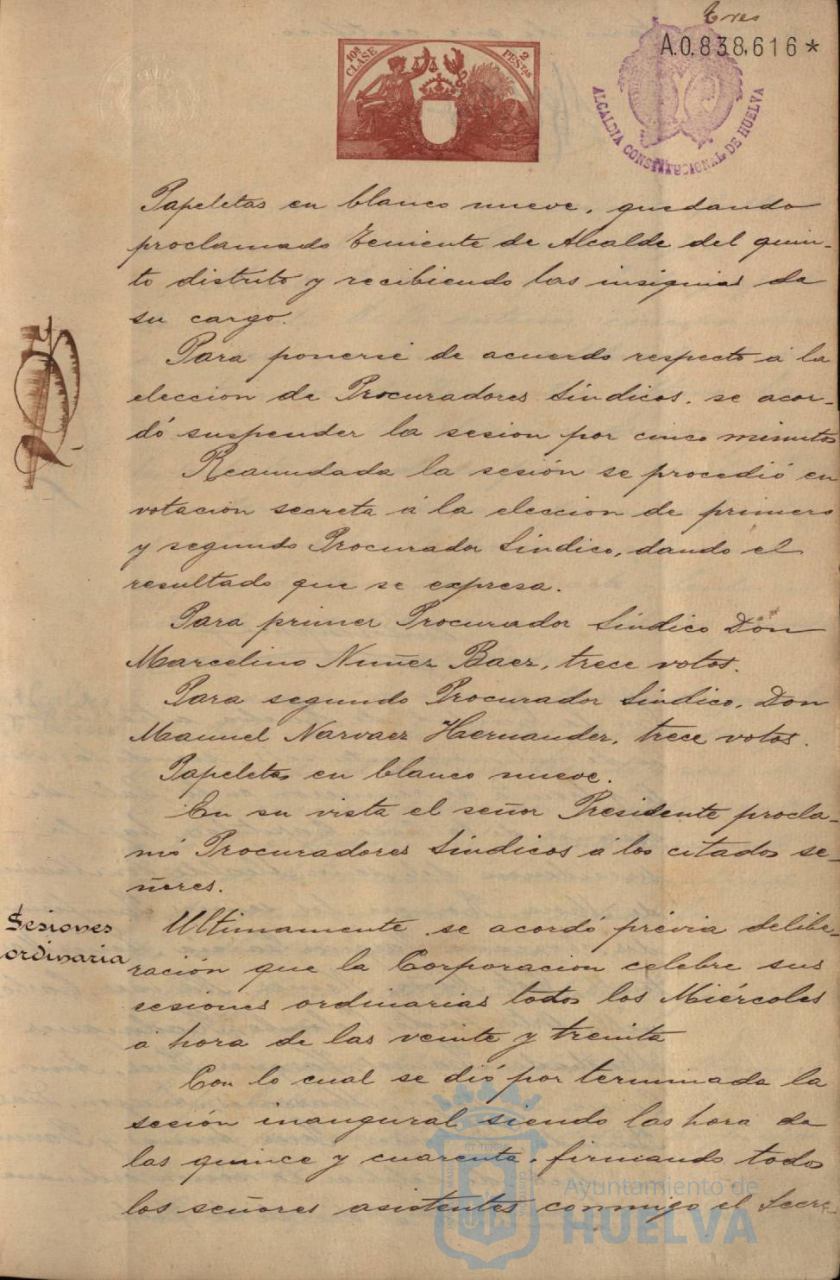 Tres
A.0.838,616*
10ª CLASE
2 PESETAS
ALCALDIA CONSTITUCIONAL DE HUELVA
Papeletas en blanco nueve, quedando
proclamado Teniente de Alcalde del quin-
to distrito y recibiendo las insignias de
su cargo.
Para ponerse de acuerdo respecto á la
eleccion de Procuradores Síndicos, se acor-
dó suspender la sesion por cinco minutos
Reanudada la sesión se procedió en
votación secreta á la eleccion de primero
y segundo Procurador Síndico, dando el
resultado que se expresa.
Para primer Procurador Síndico Don
Marcelino Nuñez Baez, trece votos.
Para segundo Procurador Síndico, Don
Manuel Narvaez Hernandez, trece votos.
Papeletas en blanco nueve.
En su vista el señor Presidente procla-
mó Procuradores Síndicos á los citados se-
ñores.
Sesiones
ordinaria
Ultimamente se acordó prévia delibe-
ración que la Corporacion celebre sus
sesiones ordinarias todos los Miércoles
a hora de las veinte y treinta
Con lo cual se dió por terminada la
sesión inaugural siendo las hora de
las quince y cuarenta, firmando todos
los señores asistentes conmigo el Secre-
Ayuntamiento de
HUELVA